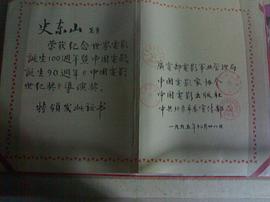 史东山 先生
荣获纪念世界电影
诞生100週年暨中国电影
诞生90週年《中国电影
世纪奖》导演奖.
特颁发此证书
广电部电影事业管理局
中国电影家协会
中国电影出版社
中共北京市委宣传部
一九九五年十二月廿八日